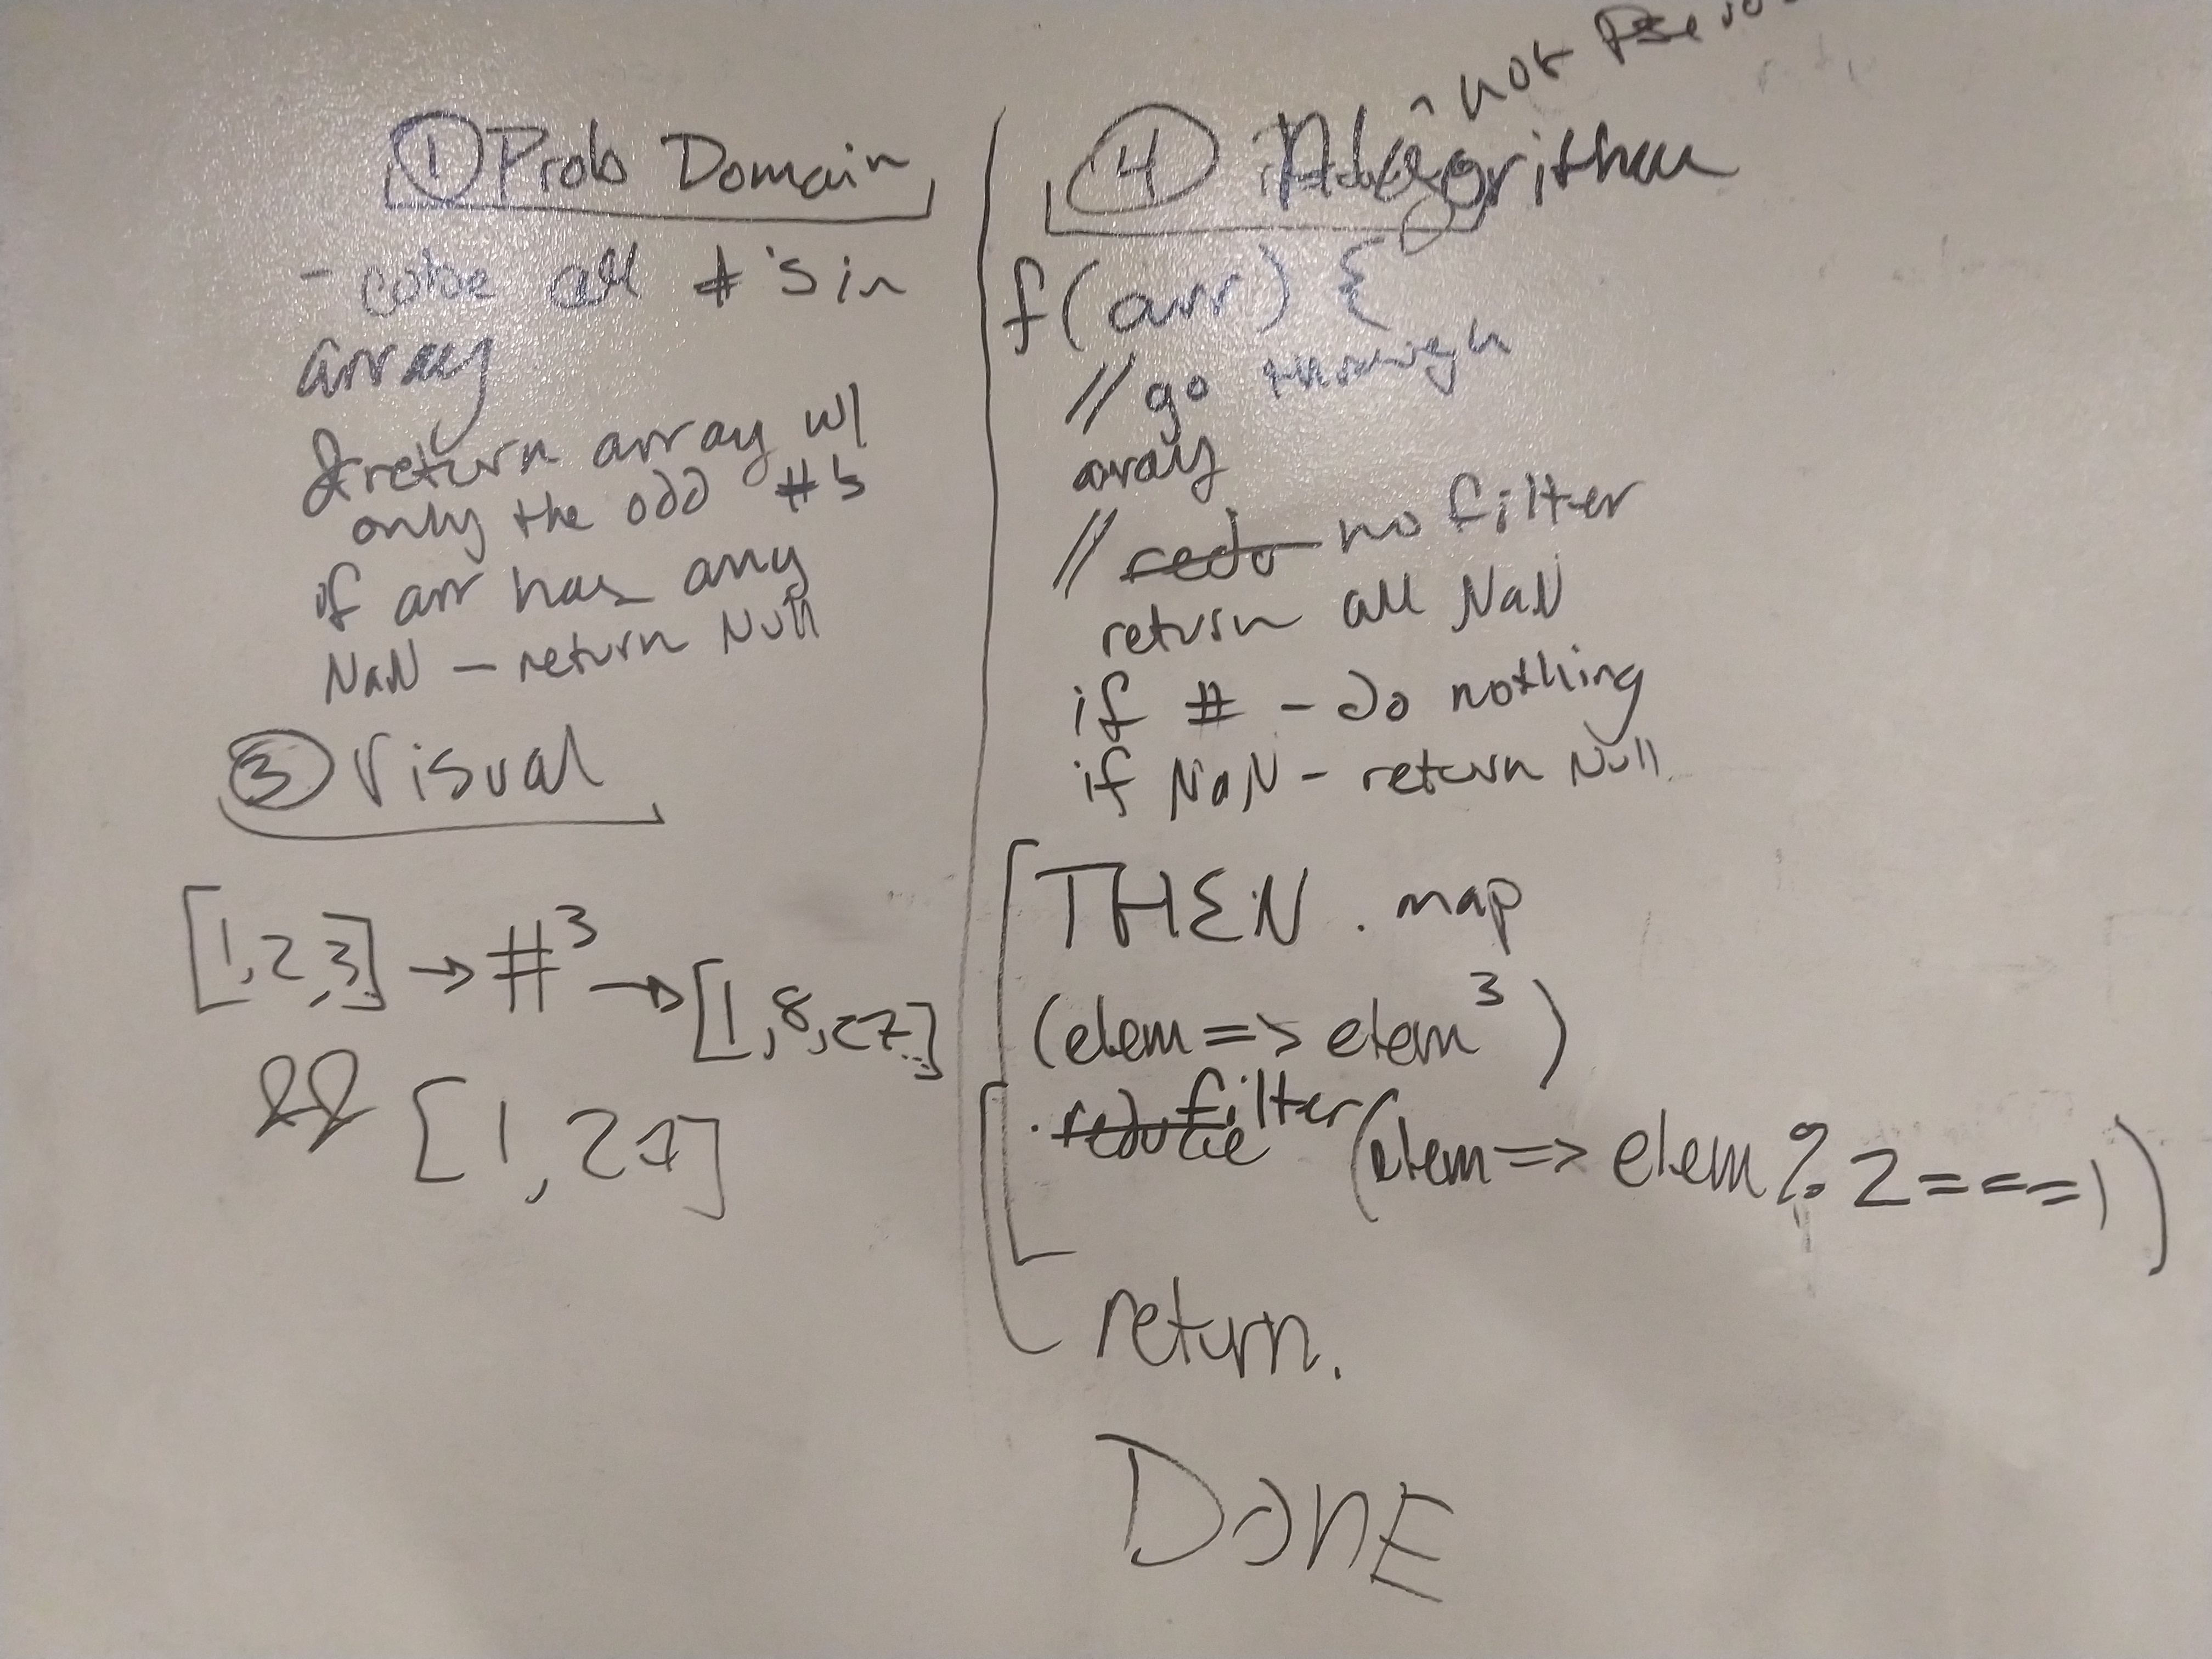 ① Prob Domain
- cube all #'s in
array
& return array w/
only the odd #s
if arr has any
NaN - return Null
③ Visual
[1,2,3] → #³ → [1,8,27]
&& [1,27]
not
④ Algorithm
f(arr) {
// go through
array
// redu no filter
return all NaN
if # - do nothing
if NaN - return Null
THEN .map
(elem => elem³)
.reduce filter (elem => elem % 2 === 1)
return.
DONE